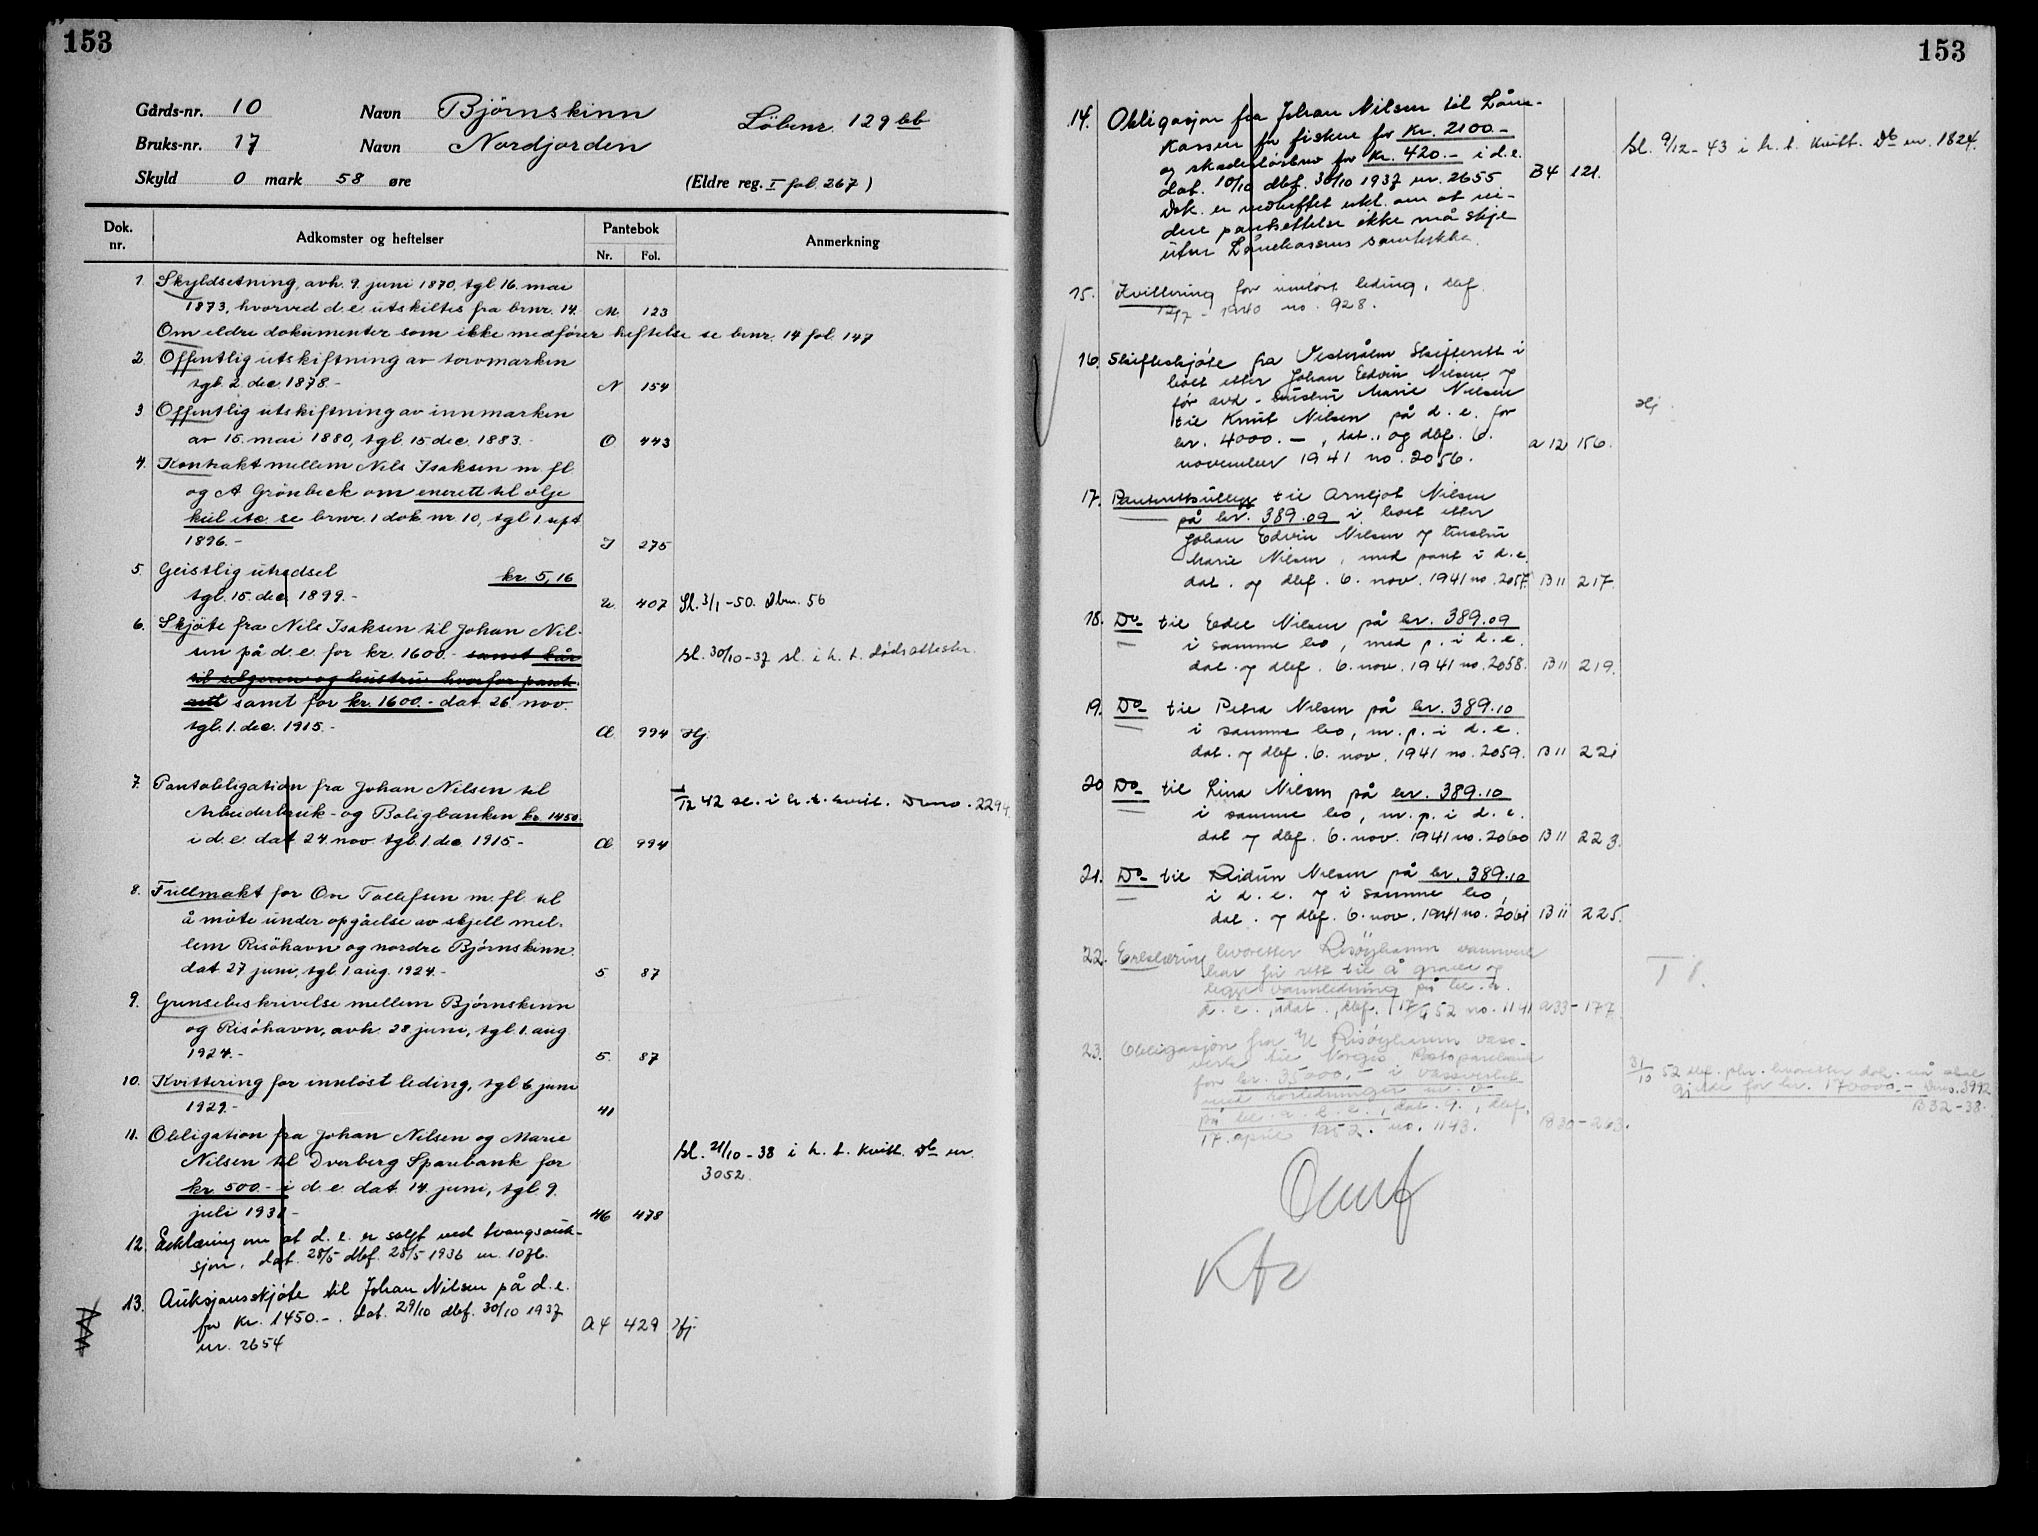 153
Gårds-nr. 10 Navn Bjørnskinn Löbenr. 129 bb
Bruks-nr. 17 Navn Nordjorden
Skyld 0 mark 58 øre (Eldre reg. I fol. 267)
Dok. nr. Adkomster og heftelser Pantebok Nr. Fol. Anmerkning
1. Skyldsetning, avh. 9. juni 1870, tgl 16. mai
1873, hvorved d.e. utskiltes fra brnr. 14. M 123
Om eldre dokumenter som ikke medfører heftelse se brnr. 14 fol. 147
2. Offentlig utskiftning av torvmarken
tgl. 2. dec. 1878.- N 154
3 Offentlig utskiftning av innmarken
av 15. mai 1880, tgl. 15 dec. 1883.- O 443
4. Kontrakt mellem Nils Isaksen m. fl
og A Grönbeck om enerett til olje
kul etc. se brnr. 1 dok nr 10, tgl 1. sept
1896.- 275
5. Geistlig utredsel kr. 5,16
tgl. 15. dec. 1899.- 407 Sl. 3/1-50. Dbnr. 56
6. Skjöte fra Nils Isaksen til Johan Nil-
sen på d.e. for kr. 1600.- samt kår sl. 30/10-37 sl. i h. t. dödsattester.
til selgeren og hustru hvorfor pant-
rett samt for kr. 1600.- dat. 26 nov.
tgl. 1. dec. 1915.- 994 Hj.
7. Pantobligation fra Johan Nilsen til
Arbeiderbruk- og Boligbanken kr. 1450. 1/12 42 sl. i h. t. kvitt. Dbno. 2294.
i d.e. dat 24. nov. tgl. 1. dec 1915.- 994
8. Fullmakt for Ove Tollefsen m. fl. til
å möte under opgåelse av skjell mel-
lem Risöhavn og nordre Björnskinn.
dat 27 juni, tgl 1 aug. 1924.- 5 87
9. Grensebeskrivelse mellem Björnskinn
og Risöhavn, avh. 28 juni, tgl. 1. aug.
1924.- 5. 87
10. Kvittering for innlöst leding, tgl 6 juni
1929.- 41
11. Obligation fra Johan Nilsen og Marie
Nilsen til Dverberg Sparebank for sl. 21/10-38 i h. t. kvitt. Db nr.
kr 500.- i d.e. dat. 14 juni, tgl. 9. 3052.
juli 1931- 46 478
12. Erklæring om at d. e. er solgt ved tvangsauk-
sjon, dat. 28/5 dbf. 28/5 1936 nr. 1076.
13. Auksjonsskjöte til Johan Nilsen på d.e.
for kr. 1450.-. dat. 29/10 dbf. 30/10 1937 A4 429 Hj.
nr. 2654
153
14. Obligasjon fra Johan Nilsen til Låne-
kassen for fiskere for kr. 2100.-
og skadeslösbrev for kr. 420.- i d.e. sl. 9/12-43 i h. t. kvitt. Db nr. 1824.
dat. 10/10 dbf. 30/10 1937 nr. 2655 B4 121.
Dok. er vedheftet erkl. om at vi-
dere pantsettelse ikke må skje
uten Lånekassens samtykke.
15. Kvittering for innlöst leding, dbf.
12/7-1940 no. 928.
16. Skifteskjöte fra Vesterålen Skifterett i
boet etter Johan Edvin Nilsen og
før avd. hustru Marie Nilsen
til Knut Nilsen på d. e. for Hj.
kr. 4000.-, dat. og dbf. 6.
november 1941 no. 2056. A 12 156.
17. Panterettsutlegg til Arnljot Nilsen
på kr. 389.09 i boet etter
Johan Edvin Nilsen og hustru
Marie Nilsen, med pant i d.e.
dat. og dbf. 6. nov. 1941 no. 2057. B 11 217.
18. Do- til Edel Nilsen på kr. 389.09
i samme bo, med p. i d. e.
dat. og dbf. 6. nov. 1941 no. 2058. B 11 219.
19. Do- til Petra Nilsen på kr. 389.10
i samme bo, m. p. i d. e.
dat. og dbf. 6. nov. 1941 no. 2059. B 11 221
20 Do- til Lina Nilsen på kr. 389.10
i samme bo, m. p. i d. e.
dat og dbf. 6. nov. 1941 no. 2060 B 11 223.
21. Do- til Ridun Nilsen på kr. 389.10
i d. e. og i samme bo,
dat. og dbf. 6. nov. 1941 no. 2061 B 11 225.
22. Erklæring hvoretter Risöyhamn vannverk
har fri rett til å grave og
legge vannledning på bl. a.
d. e., udat., dbf. 17/4 52 no. 1141 A 33-177.
23. Obligasjon fra Risöyhamn vass-
verk til Norges Postsparebank
for kr. 35000,- i vassverket
med rörledninger m. v.
på bl. a. d. e., dat. 9., dbf. 31/10 52 dbf. hvoretter dok. nå skal
17. april 1952. no. 1143. B 30-263. gjelde for kr. 170000.- Dbno. 3992
B 32-38.